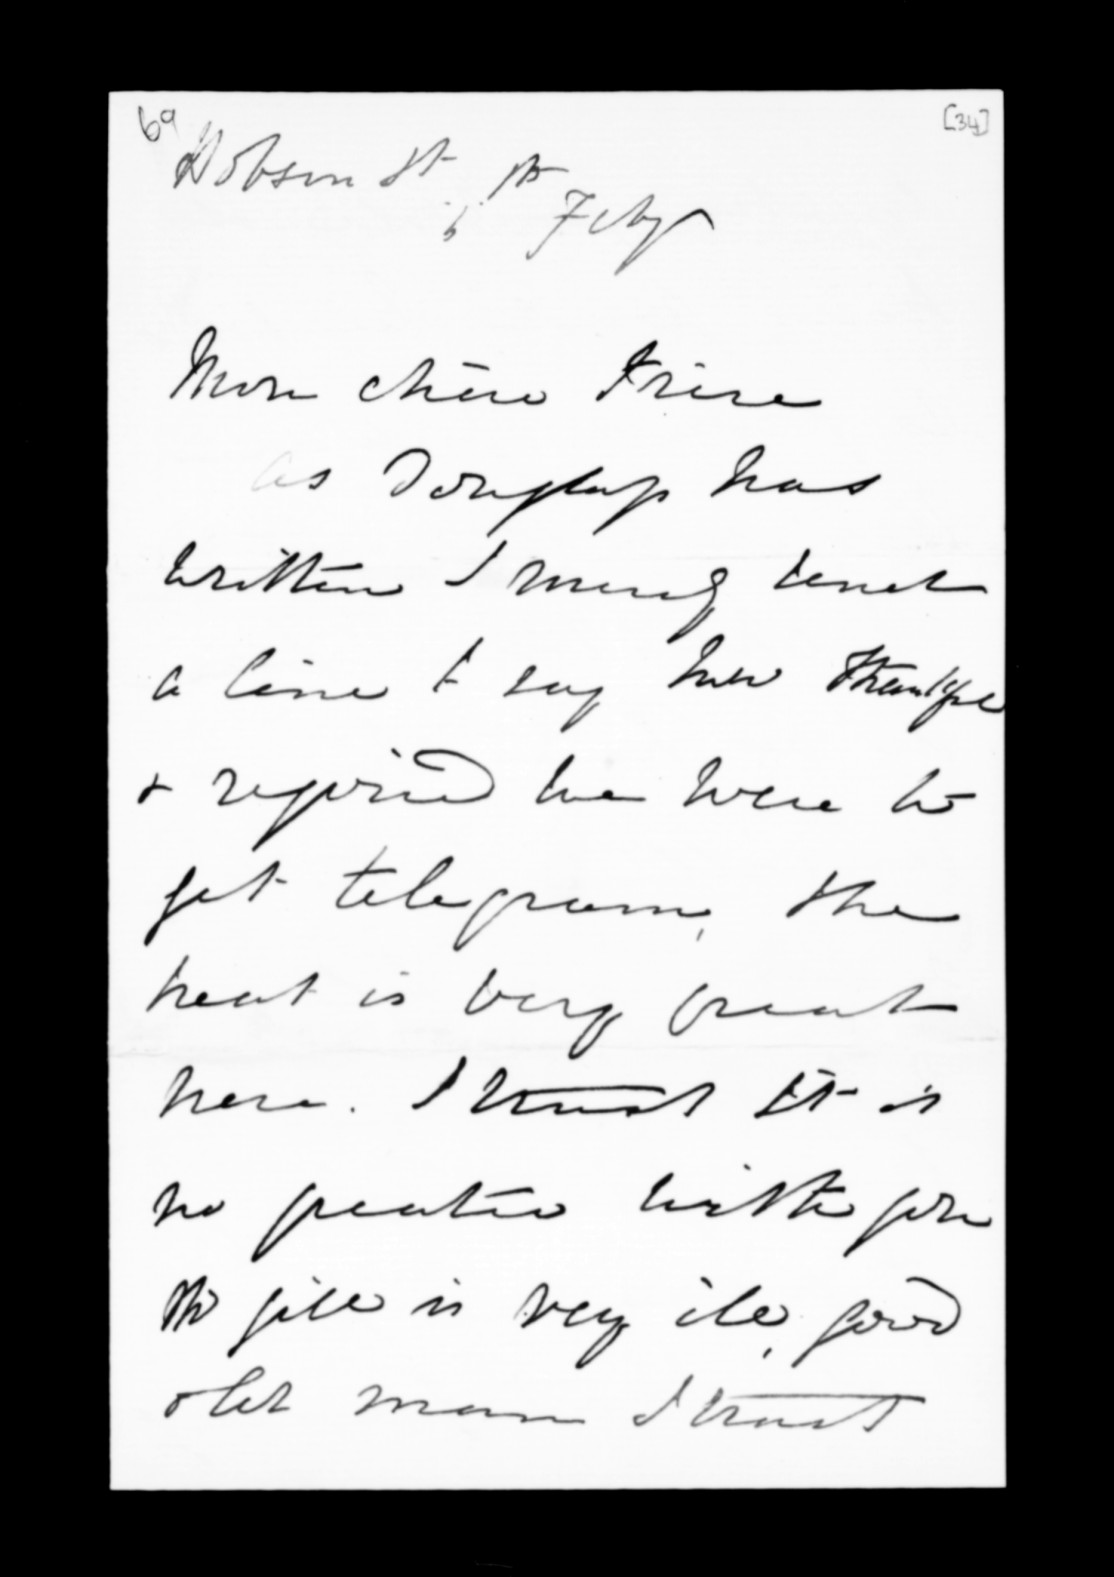 69 [34]
Hobson St
6 Feby
Mon chère Frère
as Douglas has
written I merely send
a line to say how thankful
& rejoiced we were to
get telegram, the
heat is very great
here. I trust it is
no greater with you
Mr Gill is very ill, good
old man I trust